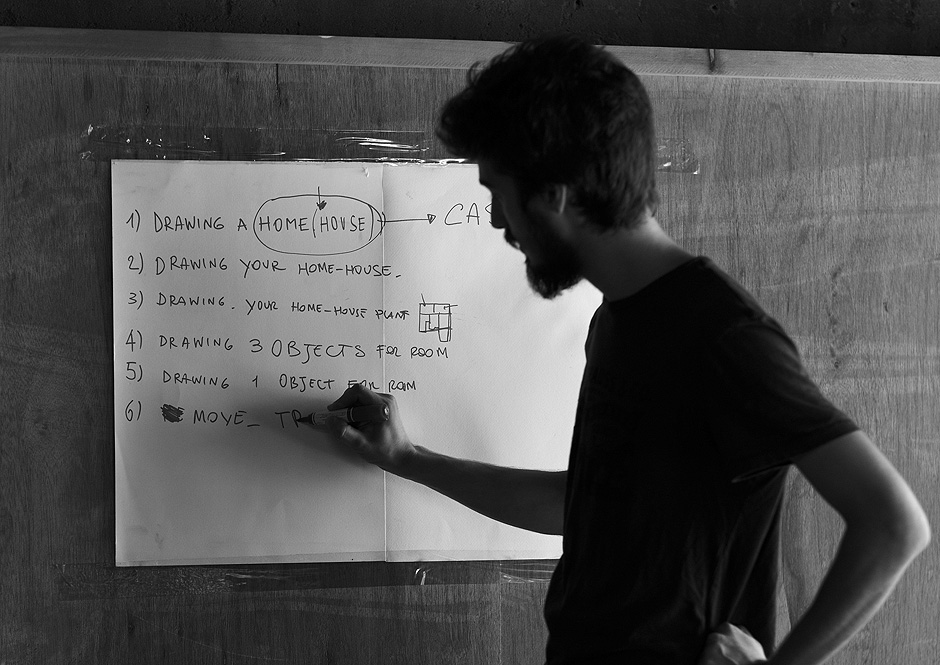 1) DRAWING A HOME (HOUSE) → CAS
2) DRAWING YOUR HOME-HOUSE.
3) DRAWING. YOUR HOME-HOUSE PLANT
4) DRAWING 3 OBJECTS FOR ROOM
5) DRAWING 1 OBJECT FOR ROOM
6) MOVE_ TR